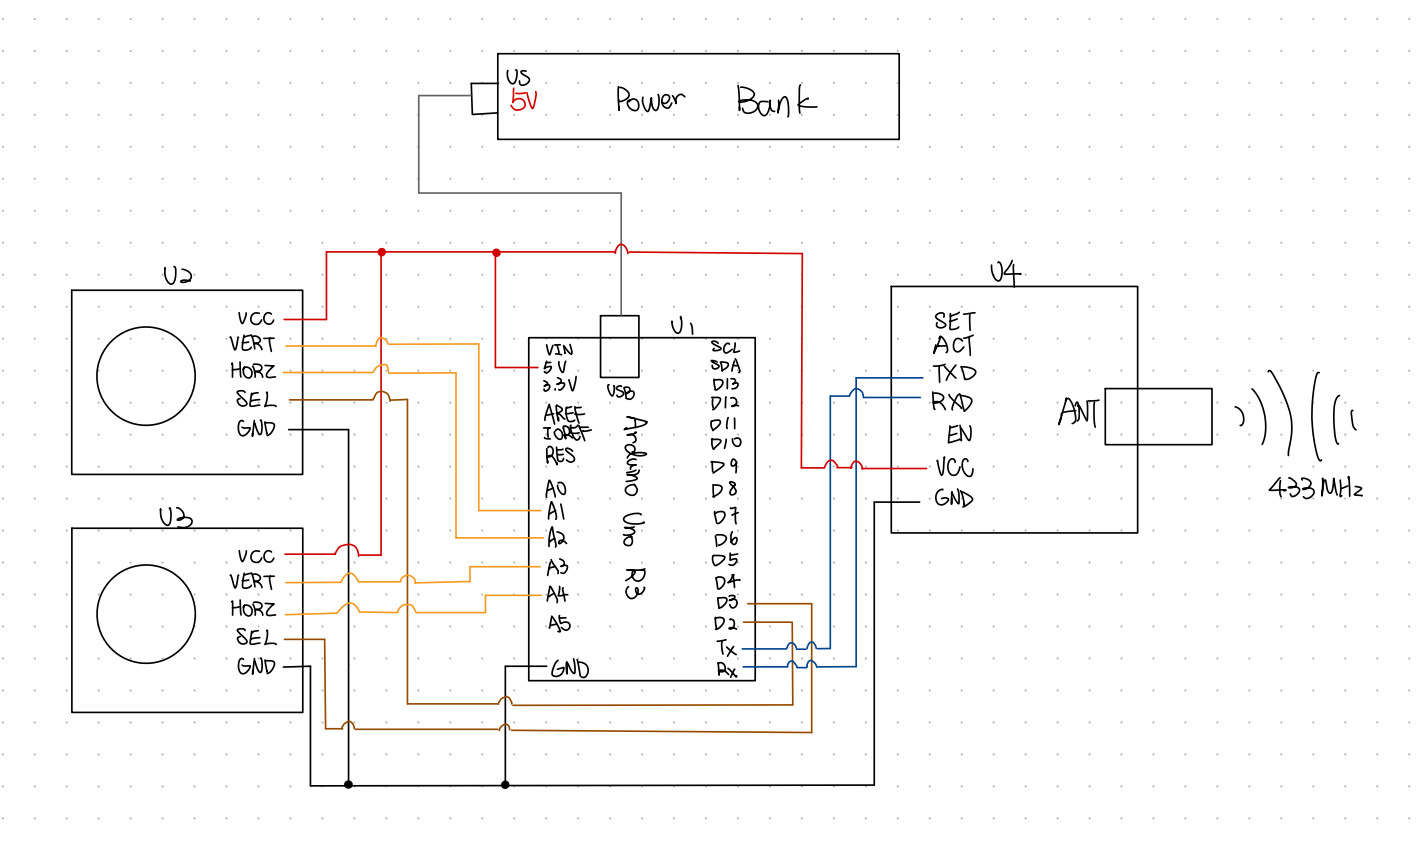 U5
5V
Power Bank
U2
VCC
VERT
HORZ
SEL
GND
U3
VCC
VERT
HORZ
SEL
GND
U1
USB
VIN
5V
3.3V
AREF
IOREF
RES
A0
A1
A2
A3
A4
A5
GND
Arduino Uno R3
SCL
SDA
D13
D12
D11
D10
D9
D8
D7
D6
D5
D4
D3
D2
Tx
Rx
U4
SET
ACT
TXD
RXD
EN
VCC
GND
ANT
433 MHz